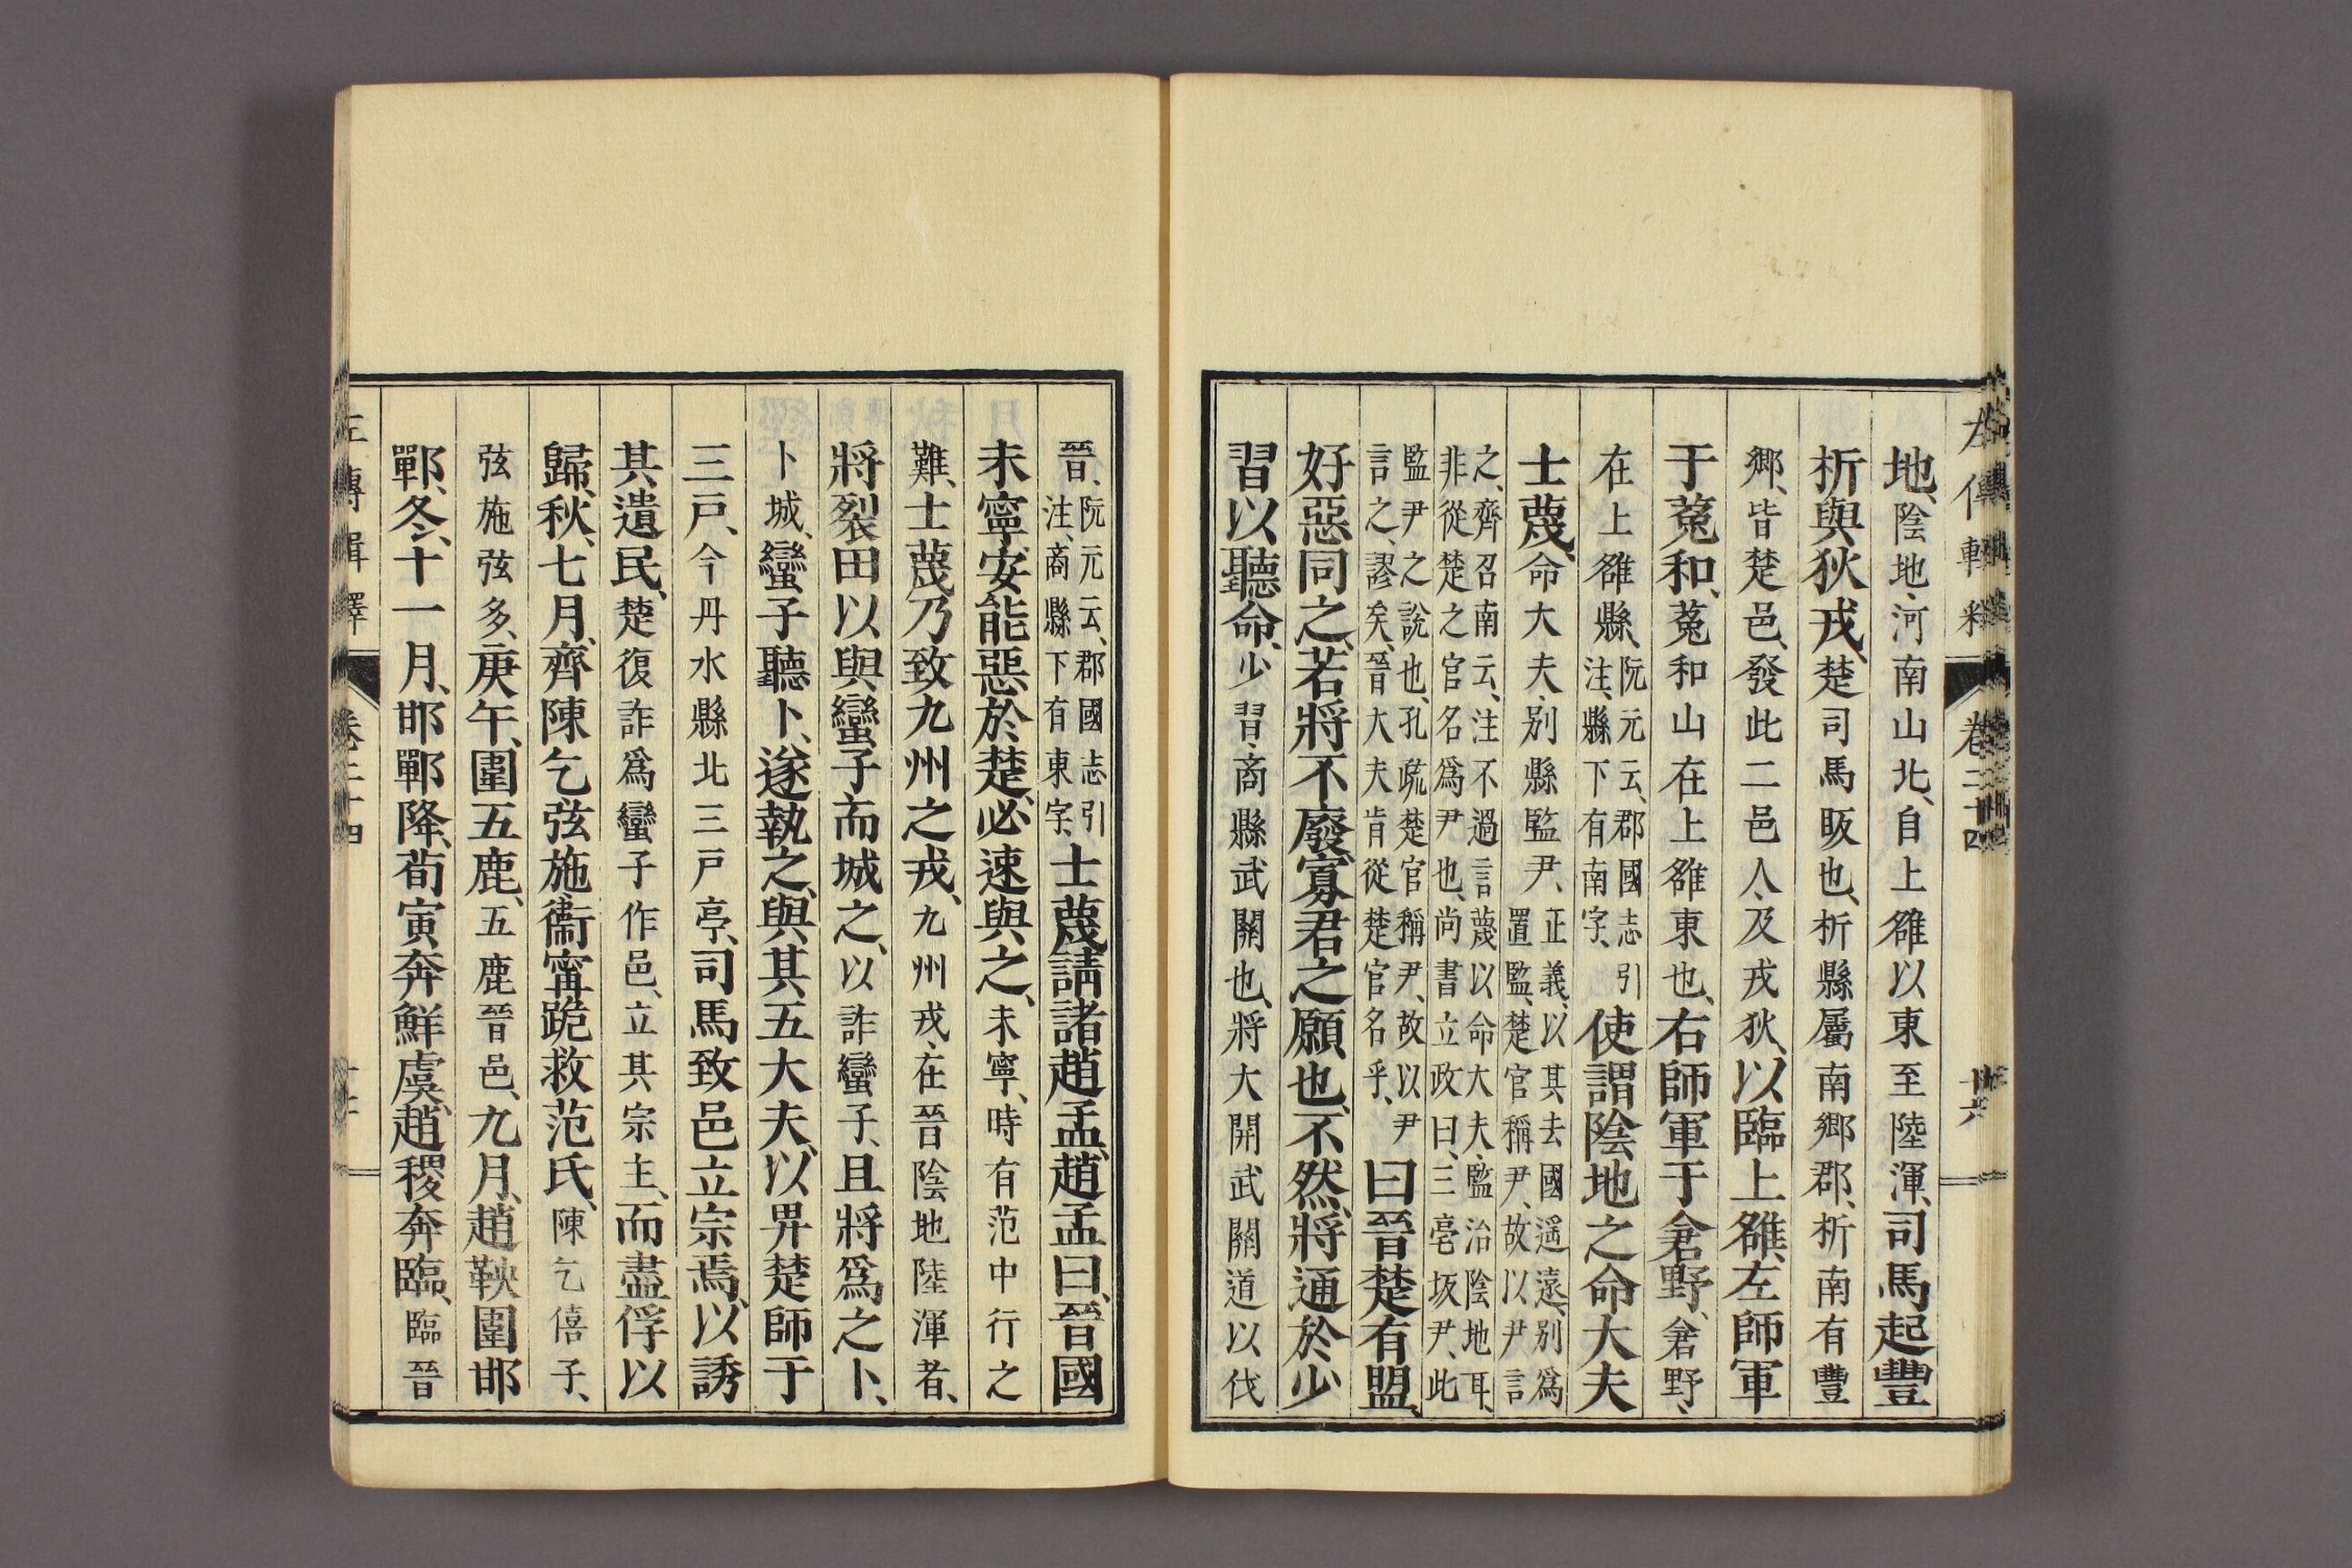 地、陰地、河南山北、自上雒以東至陸渾、司馬起豐
析與狄戎、楚司馬販也、析縣屬南鄉郡、析南有豐
鄉、皆楚邑、發此二邑人、及戎狄、以臨上雒、左師軍
于菟和、菟和山在上雒東也、右師軍于倉野、倉野、
在上雒縣、阮元云、郡國志引注、縣下有南字、使謂陰地之命大夫
士蔑、命大夫、別縣監尹、正義、以其去國遥遠、別爲置監、楚官稱尹、故以尹言
之、齊召南云、注不過言蔑以命大夫、監治陰地耳、非從楚之官名爲尹也、尚書立政曰、三亳坂尹、此
監尹之說也、孔疏楚官稱尹、故以尹言之、謬矣、晉大夫肯從楚官名乎、曰晉楚有盟、
好惡同之、若將不廢、寡君之願也、不然、將通於少
習以聽命、少習、商縣武關也、將大開武關道以伐
晉、阮元云、郡國志引注、商縣下有東字、士蔑請諸趙孟、趙孟曰、晉國
未寧、安能惡於楚、必速與之、未寧、時有范中行之
難、士蔑乃致九州之戎、九州戎、在晉陰地陸渾者、
將裂田以與蠻子而城之、以詐蠻子、且將爲之卜、
卜城、蠻子聽卜、遂執之、與其五大夫、以畀楚師于
三戸、今丹水縣北三戸亭、司馬致邑立宗焉、以誘
其遺民、楚復詐爲蠻子作邑、立其宗主、而盡俘以
歸、秋、七月、齊陳乞弦施、衞甯跪救范氏、陳乞僖子、
弦施弦多、庚午、圍五鹿、五鹿晉邑、九月、趙鞅圍邯
鄲、冬、十一月、邯鄲降、荀寅奔鮮虞、趙稷奔臨、臨晉